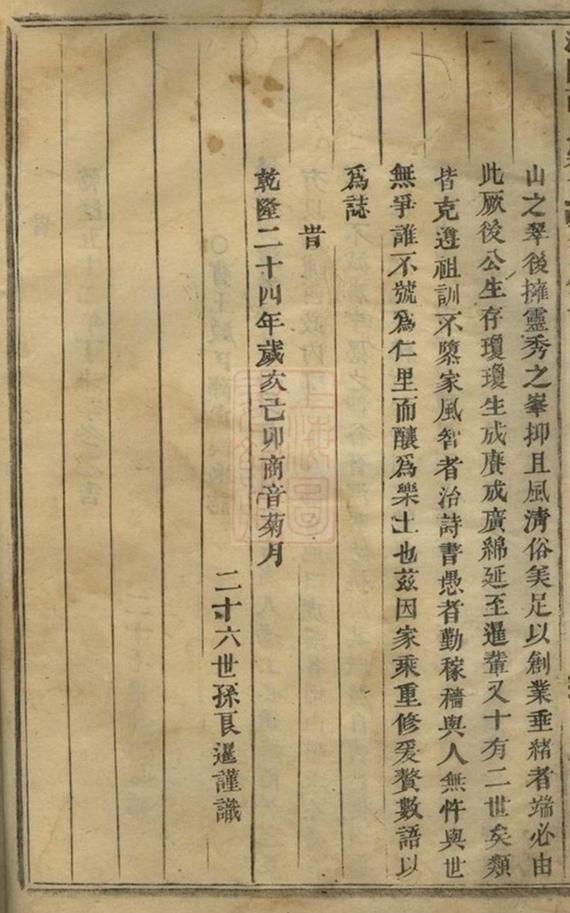 山之翠後擁靈秀之峯抑且風清俗美足以創業垂緒者端必由
此厥後公生存瓊瓊生成賡成廣綿延至暹輩又十有二世矣類
皆克遵祖訓不隳家風智者治詩書愚者勤稼穡與人無忤與世
無爭誰不號爲仁里而釀爲樂土也茲因家乘重修爰贅數語以
爲誌
旹
乾隆二十四年歲亥己卯商音菊月
二十六世孫良暹謹識